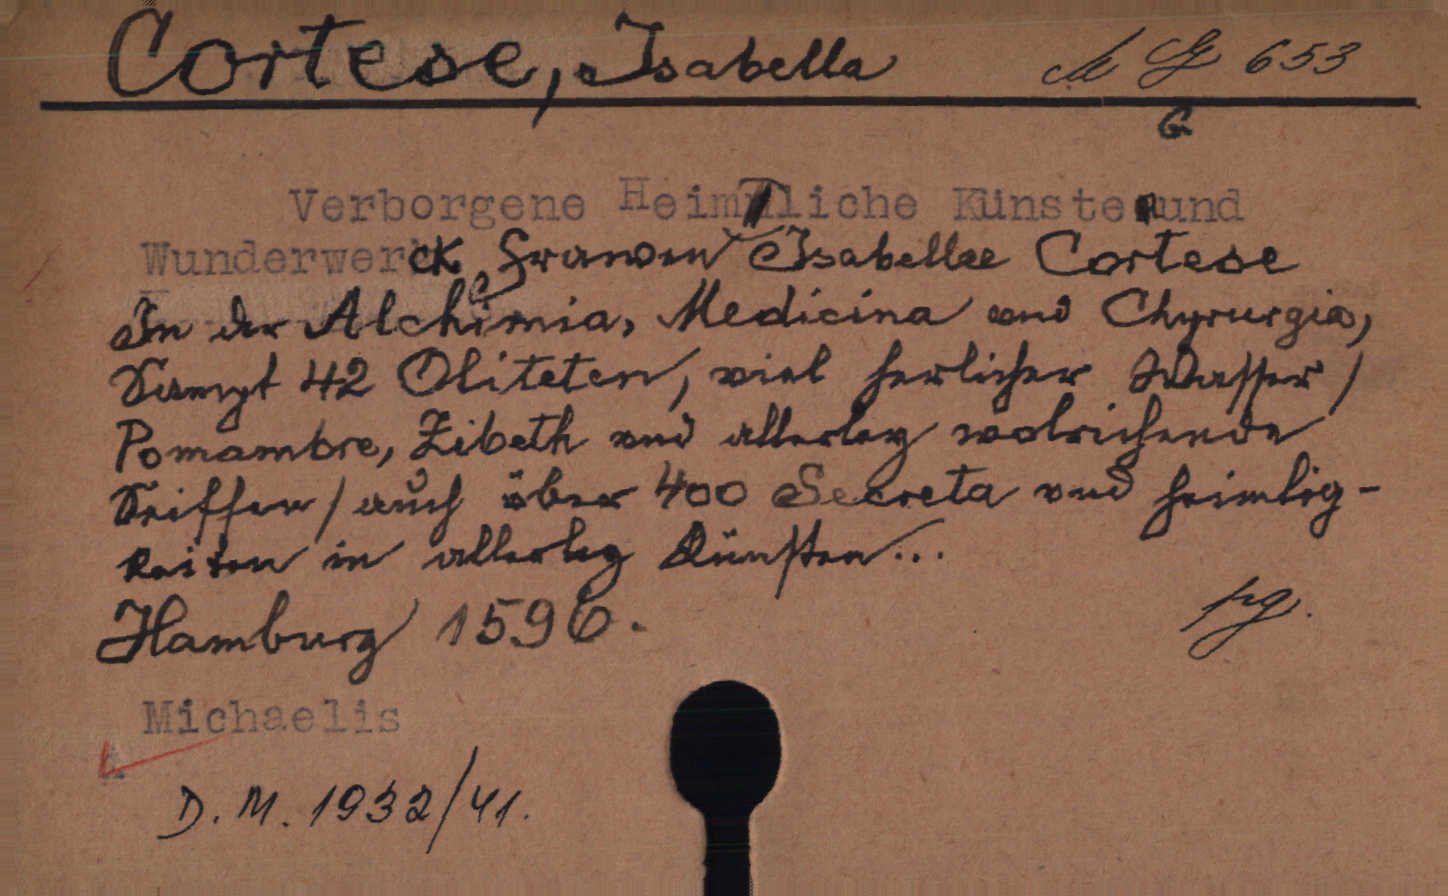 Cortese, Isabella M G 653
G
Verborgene Heimliche Künste und
Wunderwerck Frawen Isabellae Cortese
In der Alchimia, Medicina und Chyrurgia,
Sampt 42 Oliteten, viel herlicher Wasser /
Pomambre, Zibeth und allerley wolrichende
Seiffen / auch über 400 Secreta und heimlig-
keiten in allerley Künsten...
Hamburg 1596.
Michaelis
D. M. 1932/41.